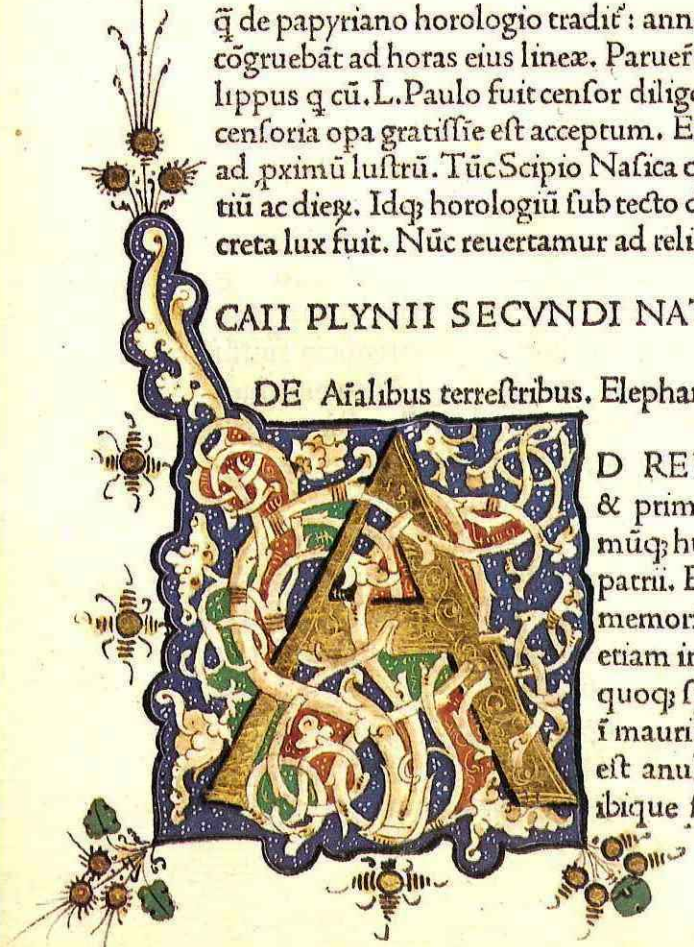 q̄ de papyriano horologio tradit᷑: ann
cōgruebāt ad horas eius lineæ. Paruer̄
lippus q cū. L. Paulo fuit cenſor dilige
cenſoria opa gratiſſie eſt acceptum. E
ad ꝓximū luſtrū. Tūc Scipio Naſica c
tiū ac dieꝝ. Idqꝫ horologiū ſub tecto
creta lux fuit. Nūc reuertamur ad reli
CAII PLYNII SECVNDI NAT
DE Aīalibus terreſtribus. Elephan
A
D RE
& prim
mūqꝫ hu
patrii. E
memori
etiam in
quoqꝫ ſ
ī mauri
eſt anu
ibique